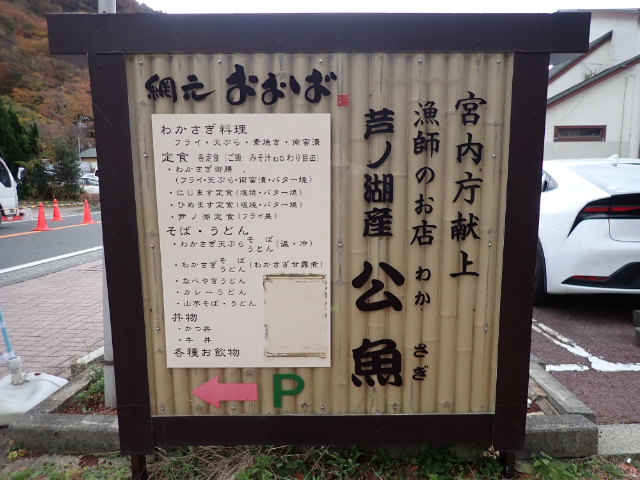 宮内庁献上
漁師のお店 わかさぎ
芦ノ湖産 公魚
網元 おおば
わかさぎ料理
フライ・天ぷら・素焼き・南蛮漬
定食 各定食(ご飯 みそ汁
・わかさぎ御膳
(フライ・天ぷら・南蛮漬・バター焼)
・にじます定食(塩焼・バター焼)
・ひめます定食(塩焼・バター焼)
・芦ノ湖定食(フライ盛)
そば・うどん
・わかさぎ天ぷら そば うどん (温・冷)
・わかさぎ そば うどん (わかさぎ甘露煮)
・なべやきうどん
・カレーうどん
・山芋そば・うどん
丼物
・かつ丼
・牛丼
各種お飲物
P